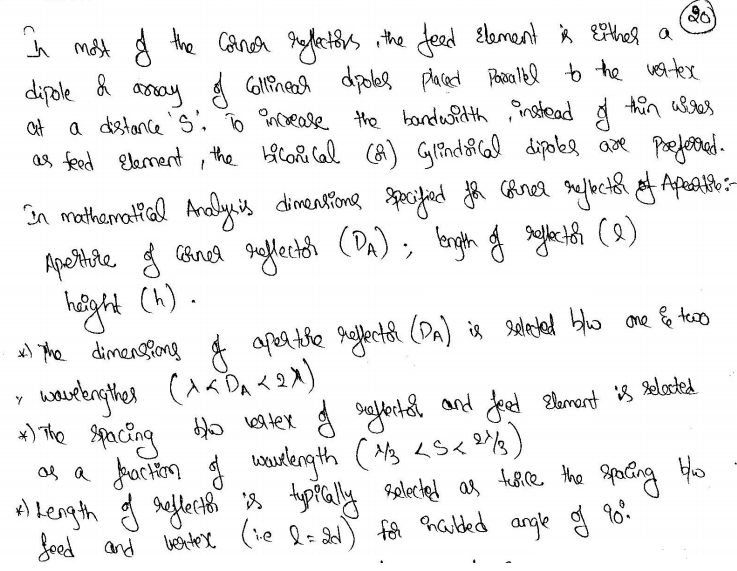 20
In most of the Corner reflectors, the feed element is either a
dipole or array of Collinear dipoles placed Parallel to the vertex
at a distance 's'. To increase the bandwidth, instead of thin wires
as feed element, the biconical (or) Cylindrical dipoles are Preferred.
In mathematical Analysis dimensions specified for Corner reflector of Aperture:-
Aperture of corner reflector (DA); length of reflector (l)
height (h).
*) The dimensions of aperture reflector (DA) is selected b/w one & two
wavelengthes (λ < DA < 2λ)
*) The spacing b/w vertex of reflector and feed element is selected
as a fraction of wavelength (λ/3 < S < 2λ/3)
*) Length of reflector is typically selected as twice the spacing b/w
feed and vertex (i.e l = 2d) for inculded angle of 90°.